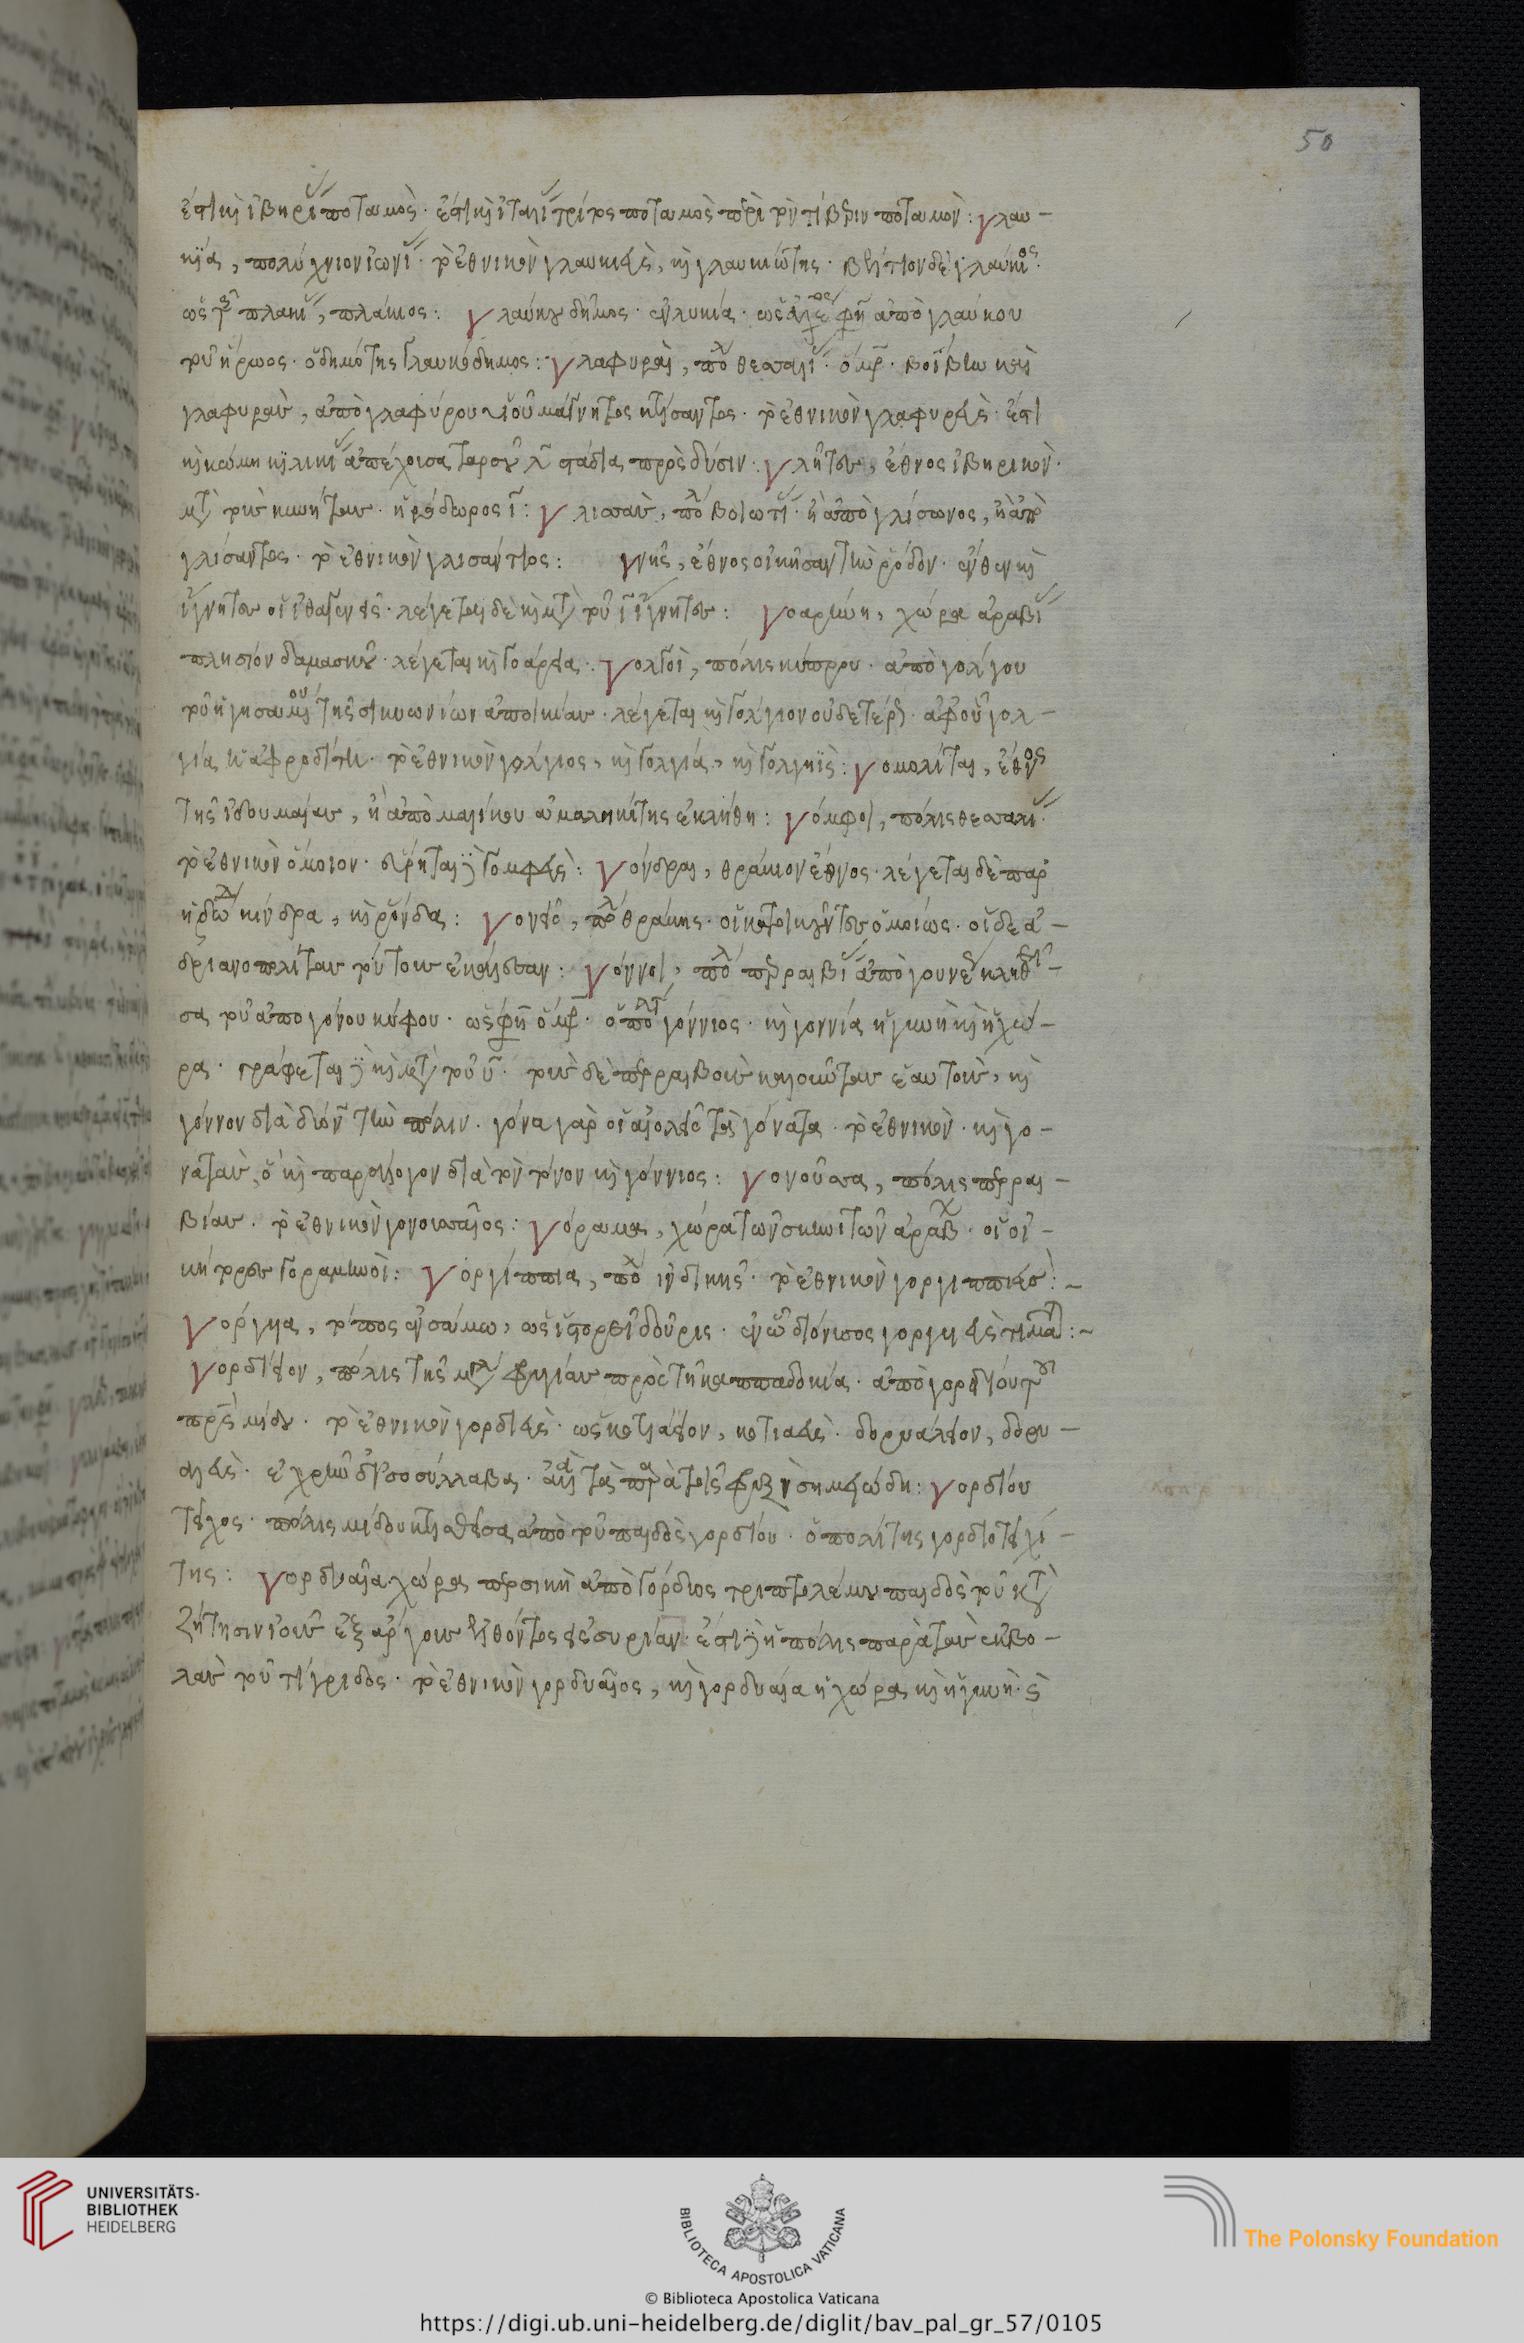 50
ἔστι καὶ ἰβηρίας ποταμός. ἔστι καὶ ἰταλίας τρίτος ποταμὸς περὶ τὸν τίβεριν ποταμόν: γλαυ-
κία, πολύχνιον ἰωνίας. τὸ ἐθνικὸν γλαυκιεὺς, καὶ γλαυκιώτης. βέλτιον δὲ γλαύκιος.
ὡς τῆς πλακίας, πλάκιος: γλαύκου δῆμος. ἐν λυκία. ὡς ἀλέξ φησὶ ἀπὸ γλαύκου
τοῦ ἥρωος. ὁ δημότης γλαυκόδημος: γλαφύραι, πόλις θεσσαλίας. ὅμηρος. βοίβην καὶ
γλαφυρὰς, ἀπὸ γλαφύρου τοῦ μάγνητος κτίσαντος. τὸ ἐθνικὸν γλαφυρεύς. ἔστι
καὶ κώμη κιλικίας ἀπέχουσα ταρσοῦ λ στάδια πρὸς δύσιν: γλῆτες, ἔθνος ἰβηρικὸν.
μετὰ τοὺς κύνητας. ἡρόδωρος ι: γλισσὰς, πόλις βοιωτίας. ἢ ἀπὸ γλίσσωνος, ἢ ἀπὸ
γλίσαντος. τὸ ἐθνικὸν γλισάντιος: γνῆς, ἔθνος οἰκῆσαν τὴν ῥόδον. ἔνθεν καὶ
ἴγνητες οἱ ἰθαγενεῖς. λέγεται δὲ καὶ μετὰ τοῦ ι ἴγνητες: γοαρήνη, χώρα ἀραβίας
πλησίον δαμασκοῦ. λέγεται καὶ γοάρεα. γολγοὶ, πόλις κύπρου. ἀπὸ γολγου
τοῦ ἡγησαμένου τῆς σικυωνίων ἀποικίας. λέγεται καὶ γόλγιον οὐδετέρως. ἀφ' οὗ γολ-
γία ἡ ἀφροδίτη. τὸ ἐθνικὸν γόλγιος, καὶ γολγία, καὶ γολγηίς: γομολίται, ἔθνος
τῆς ἰδουμαίας, ἣ ἀπὸ μαλίκου ἀμαληκίτης ἐκλήθη: γόμφοι, πόλις θεσσαλίας.
τὸ ἐθνικὸν ὅμοιον. εὕρηται γομφεύς: γόνδραι, θράκιον ἔθνος. λέγεται δὲ παρ'
ἡρωδιανῷ κίνδρα, καὶ ῥόνδα: γονεῖς, πόλις θράκης. οἱ κατοικοῦντες ὁμοίως. οἱ δὲ ἀ-
δριανοπολίτας τούτους ἐκάλεσαν: γόννοι, πόλις περραιβίας ἀπὸ γουνέως κληθεῖ-
σα τοῦ ἀπογόνου κύφου. ὥς φησιν ὅμηρος. ὁ πολίτης γόννιος. καὶ γοννία ἡ γυνὴ καὶ ἡ χώ-
ρα. γράφεται καὶ μετὰ τοῦ υ. τοὺς δὲ περραιβοὺς καλοῦντας ἑαυτοὺς, καὶ
γόννον διὰ δύο ν τὴν πόλιν. γόνα γὰρ οἱ αἰολεῖς τὰ γόνατα. τὸ ἐθνικὸν. καὶ γο-
νατὰς, ὃ καὶ παράλογον διὰ τὸν τόνον καὶ γόννιος: γονοῦσσα, πόλις περραι-
βίας. τὸ ἐθνικὸν γονουσσαῖος: γόραμα, χώρα τῶν σκηνιτῶν ἀράβων. οἱ οἰ-
κήτορες γοραμηνοί: γοργίππια, πόλις ἰνδικῆς. τὸ ἐθνικὸν γοργιππεύς:-
γόργυια, τόπος ἐν σάμω, ὡς ἱστορεῖ δοῦρις. ἐν ᾧ διόνυσος γοργυιεὺς τιμᾶται:-
γορδίειον, πόλις τῆς μεγάλης φρυγίας πρὸς τῇ καππαδοκία. ἀπὸ γορδίου τοῦ
πατρὸς μίδου. τὸ ἐθνικὸν γορδιεύς. ὡς κοτιάειον, κοτιαεύς. δορυλάειον, δορυ-
λαεύς. ἐχρῆν δὲ ἰσοσύλλαβα.
τεῖχος. πόλις μίδου κτισθεῖσα ἀπὸ τοῦ παιδὸς γορδίου. ὁ πολίτης γορδιοτειχί-
της: γορδυαία. χώρα περσικὴ ἀπὸ γόρδυος τριπτολέμου παιδὸς τοῦ κατὰ
ζήτησιν ἰοῦς ἐξ ἄργους ἐλθόντος εἰς συρίαν. ἔστι καὶ ἡ πόλις παρὰ τὰς ἐκβο-
λὰς τοῦ τίγριδος. τὸ ἐθνικὸν γορδυαῖος, καὶ γορδυαία ἡ χώρα καὶ ἡ γυνή.
UNIVERSITÄTS-
BIBLIOTHEK
HEIDELBERG
BIBLIOTECA APOSTOLICA VATICANA
The Polonsky Foundation
© Biblioteca Apostolica Vaticana
https://digi.ub.uni-heidelberg.de/diglit/bav_pal_gr_57/0105